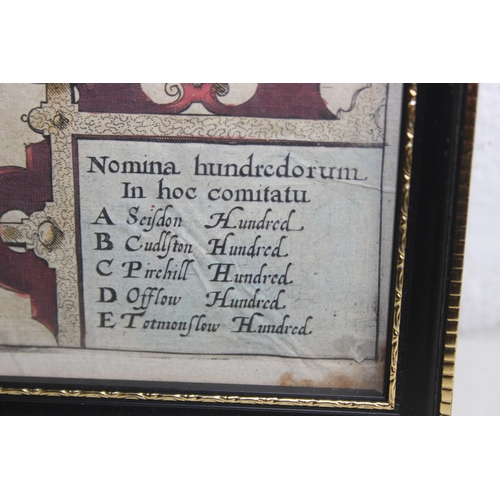 Nomina hundredorum
In hoc comitatu
A Seisdon Hundred
B Cudlston Hundred
C Pirehill Hundred
D Offlow Hundred
E Totmonslow Hundred